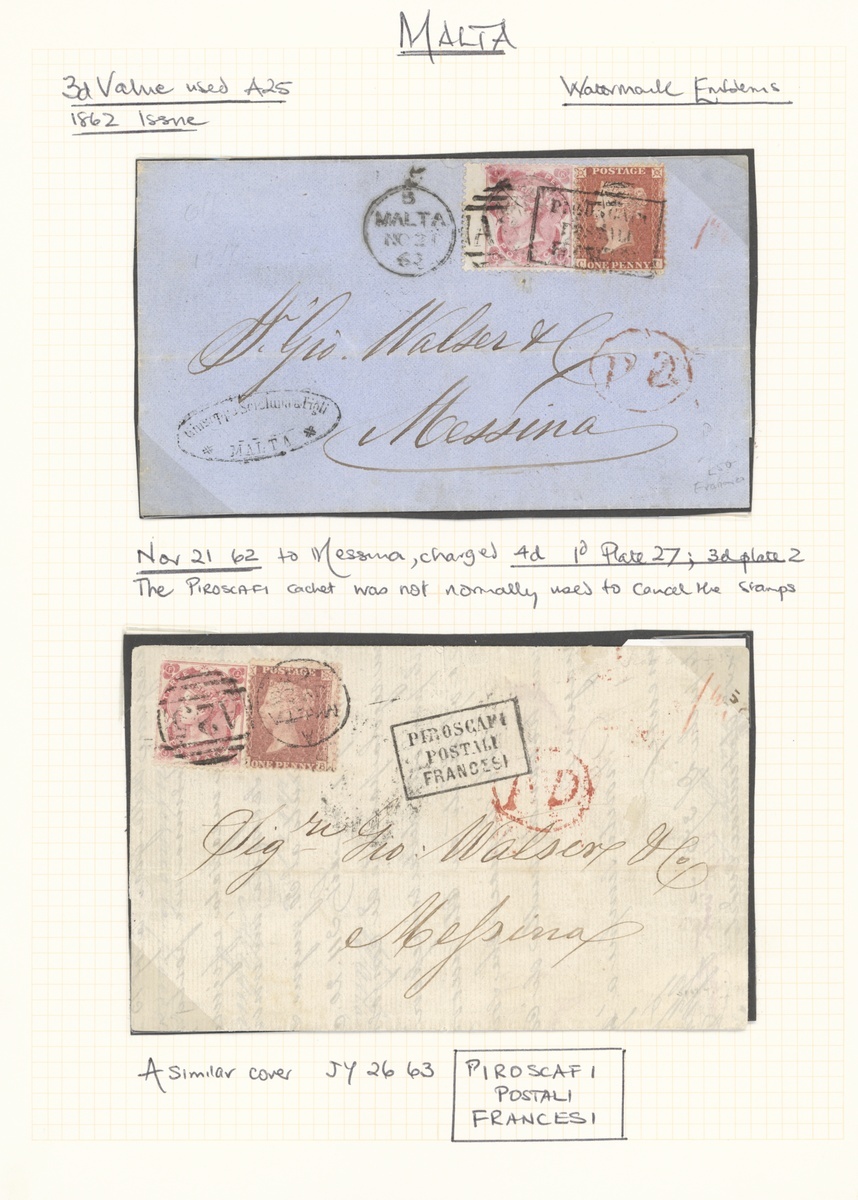 MALTA
3d Value used A25
Watermark Emblems
1862 Issue
B
MALTA
NO 21
63
A
POSTAGE
C ONE PENNY
PIROSCAFI
POSTALI
Sr. Gio. Walser & C
P D
Messina
Giuseppe & Figli
MALTA
Nov 21 62 to Messina, charged 4d 1d Plate 27; 3d plate 2
The PIROSCAFI cachet was not normally used to cancel the stamps
A25
POSTAGE
ONE PENNY
MALTA
A
PIROSCAFI
POSTALI
FRANCESI
P.D
Sigri Gio: Walser & Co
Messina
A similar cover JY 26 63
PIROSCAFI
POSTALI
FRANCESI